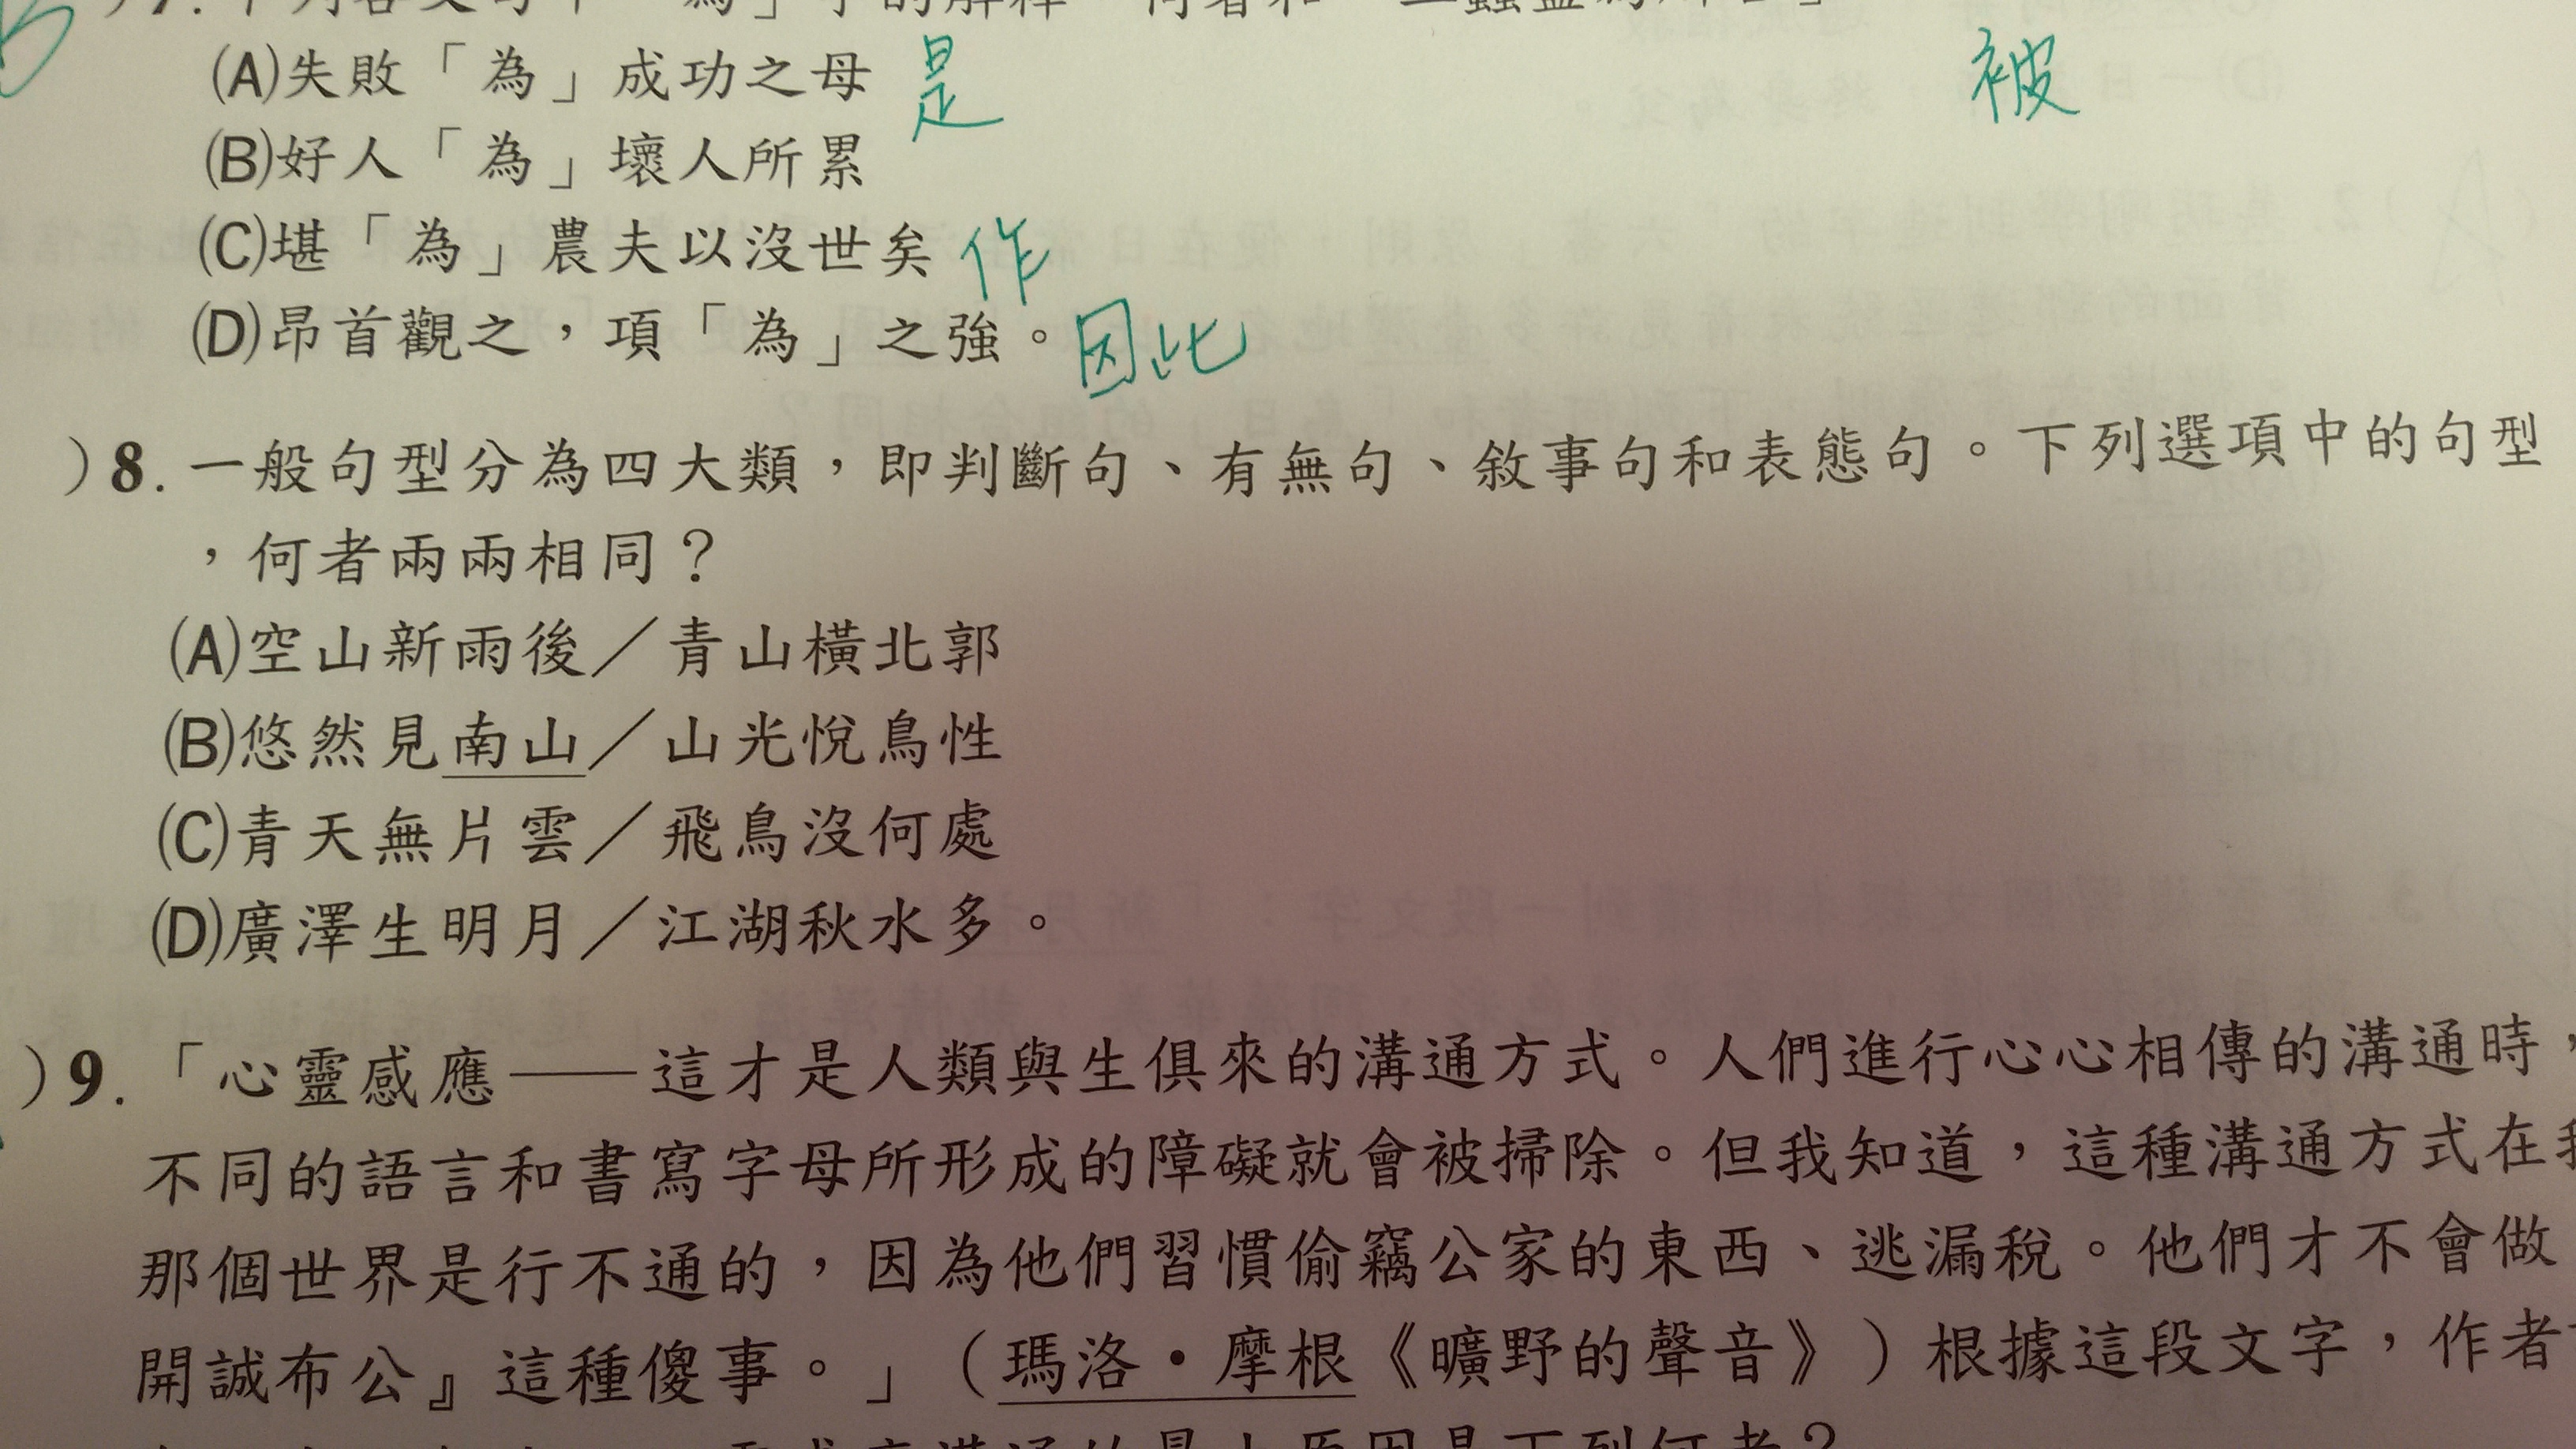 7.下列各文句中「為」字的解釋,何者和「二蟲盡為所吞」
(A)失敗「為」成功之母 是 被
(B)好人「為」壞人所累
(C)堪「為」農夫以沒世矣 作
(D)昂首觀之,項「為」之強。因此
)8.一般句型分為四大類,即判斷句、有無句、敘事句和表態句。下列選項中的句型
,何者兩兩相同?
(A)空山新雨後/青山橫北郭
(B)悠然見南山/山光悅鳥性
(C)青天無片雲/飛鳥沒何處
(D)廣澤生明月/江湖秋水多。
)9.「心靈感應——這才是人類與生俱來的溝通方式。人們進行心心相傳的溝通時,
不同的語言和書寫字母所形成的障礙就會被掃除。但我知道,這種溝通方式在我
那個世界是行不通的,因為他們習慣偷竊公家的東西、逃漏稅。他們才不會做
開誠布公』這種傻事。」(瑪洛•摩根《曠野的聲音》)根據這段文字,作者
下列何者?